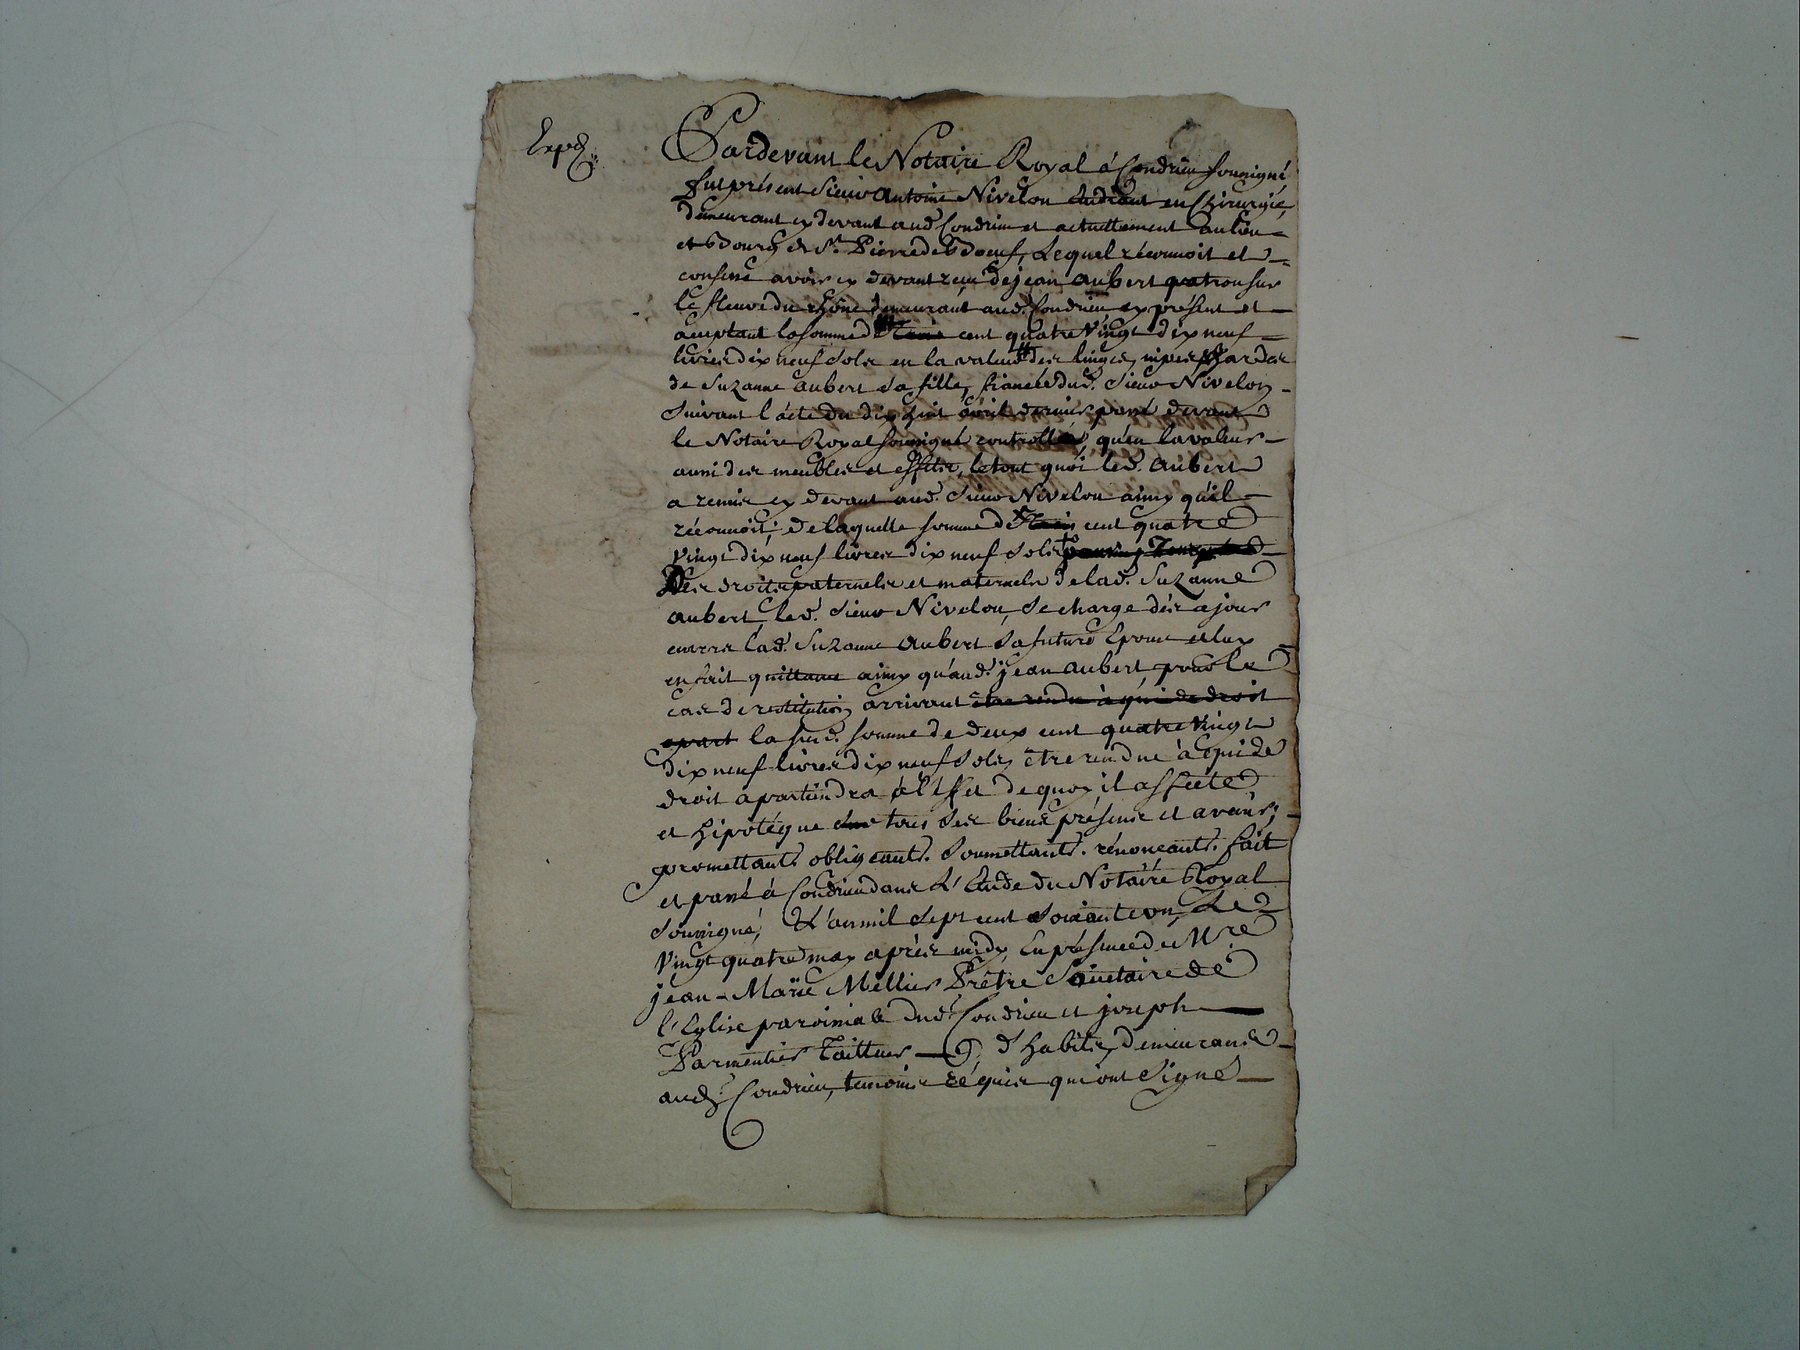 Expd.
Pardevant le Notaire Royal à Condrieu soussigné
fut présent Sieur Antoine Nivelon Etudiant en Chirurgie,
demeurant cy devant aud. Condrieu et actuellement au lieu
et Bourg de St. Pierre de Boeuf, Lequel réconnoit et
confesse avoir cy devant reçu de jean Aubert patron sur
le fleuve du rhône demeurant aud. Condrieu cy présent et
acceptant la somme de cent quatre Vingt dix neuf
livres dix neuf sols en la valeur des linges, nipes hardes
de Suzanne Aubert sa fille, fiancée dud. Sieur Nivelon
Suivant l'acte du dix huit avril dernier passé devant
le Notaire Royal soussigné controllé, qu'en la valeur
aussi des meubles et effets, le tout quoi led. Aubert
a remis cy devant aud. Sieur Nivelon ainsy qu'il
réconnoit; de laquelle somme de cent quatre
Vingt dix neuf livres dix neuf sols
Des droits paternels et maternels de lad. Suzanne
Aubert led. Sieur Nivelon, se charge dès ajour
envers lad. Suzanne Aubert sa future Epouse et luy
en fait quittance ainsy qu'aud. jean Aubert, pour le
cas de restitution arrivant être rendu à qui de droit
la susd. somme de deux cent quatre Vingt
dix neuf livres dix neuf sols être rendue à qui de
droit apartiendra à l'effet de quoy il affecte
et hipotéque tous ses biens présens et avenir;
promettants. obligeants. soumettants. rénonceants. fait
et passé à Condrieu dans L'Etude du Notaire Royal
soussigné, L'an mil sept cent soixante un, Le
Vingt quatre may après midy, En présence de Mre
jean-Marie Mellier Prêtre Sacristaire de
l'Eglise paroissiale dud. Condrieu et joseph
Parmentier Tailleur d'habits, demeurants
aud. Condrieu, temoins réquis qui ont signé